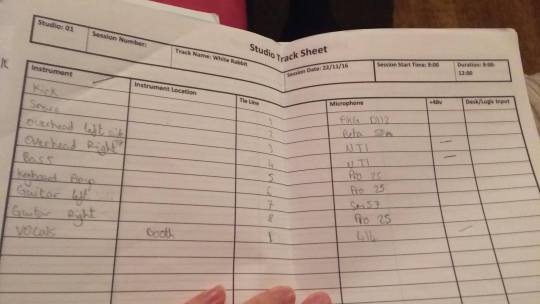 Studio Track Sheet
Studio: 01 Session Number: Track Name: White Rabbit Session Date: 22/11/16 Session Start Time: 9:00 Duration: 9:00-12:00
Instrument Instrument Location Tie Line Microphone +48v Desk/Logic Input
Kick 1 AKG D112
Snare 2 Beta
Overhead left 3 NT1 —
Overhead Right 4 NT1 —
Bass 5 Pro 25
Keyboard Amp 6 Pro 25
Guitar left 7 Sm57
Guitar Right 8 Pro 25
Vocals Booth 414